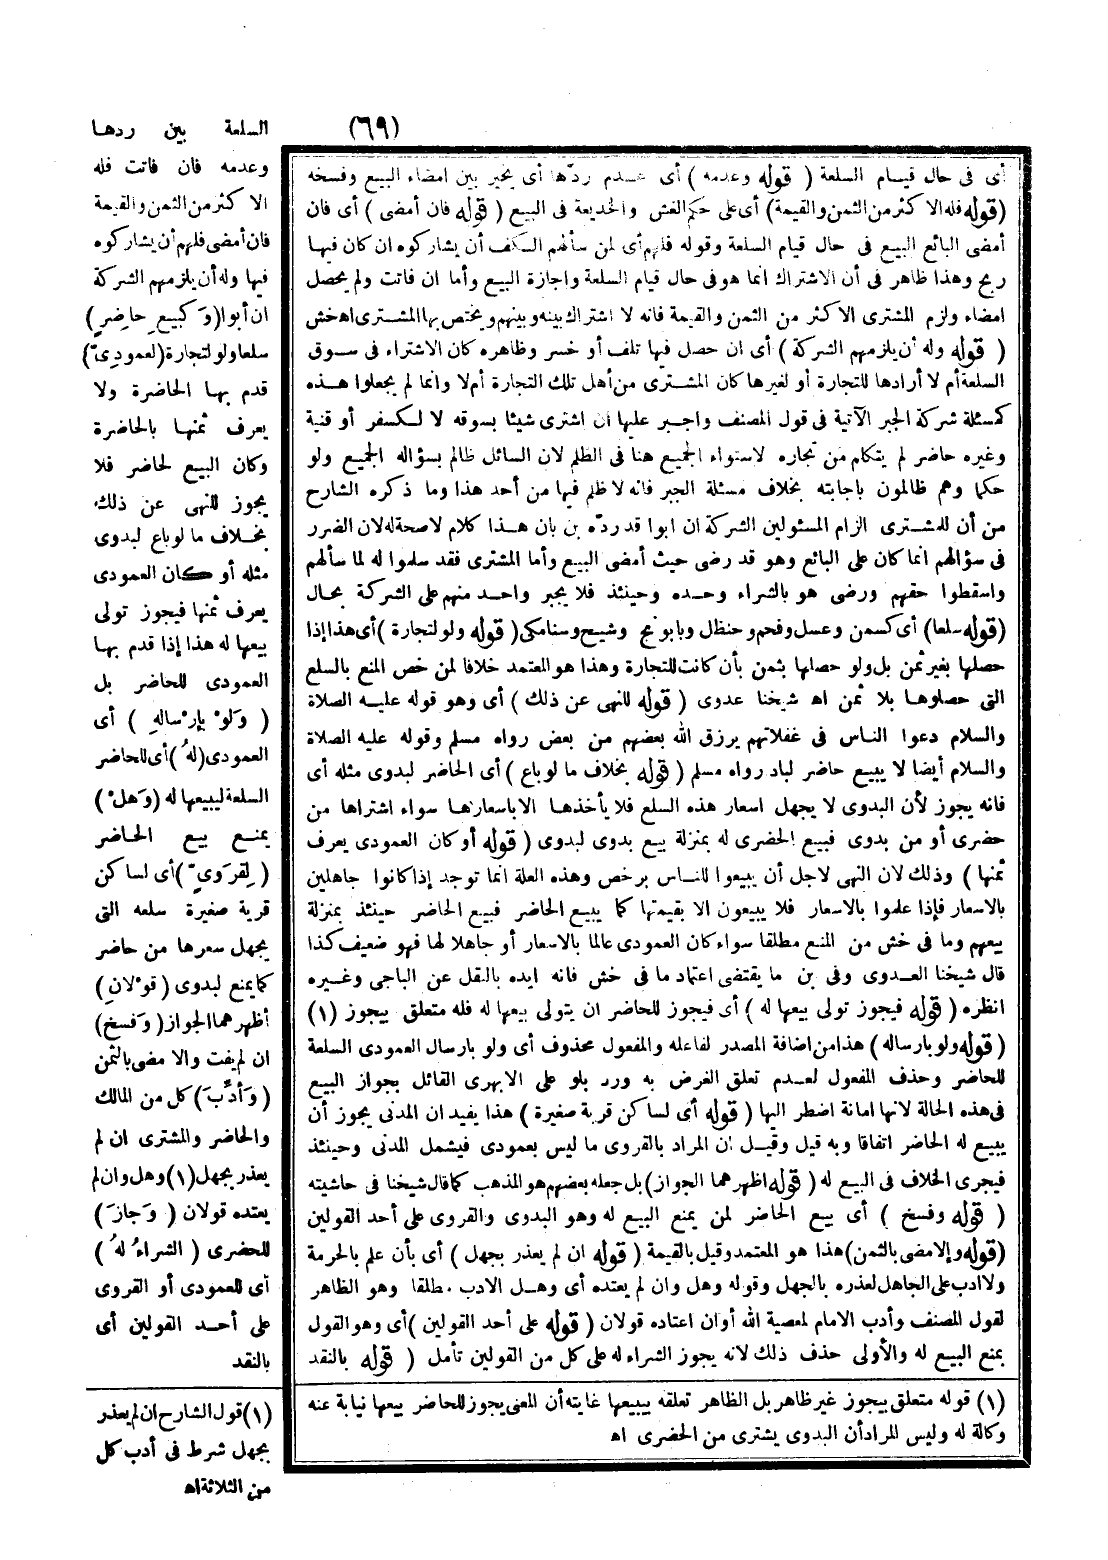 (٦٩)
أى فى حال قيام السلعة ( قوله وعدمه ) أى عدم ردّها أى يخير بين امضاء البيع وفسخه
(قوله فله الاكثر من الثمن والقيمة) أى على حكم الغش والخديعة فى البيع ( قوله فان أمضى ) أى فان
أمضى البائع البيع فى حال قيام السلعة وقوله فلهم أى لمن سألهم الكف أن يشاركوه ان كان فيها
ربح وهذا ظاهر فى أن الاشتراك انما هو فى حال قيام السلعة واجازة البيع وأما ان فاتت ولم يحصل
امضاء ولزم المشترى الاكثر من الثمن والقيمة فانه لا اشتراك بينه وبينهم ويختص بها المشترى اه خش
( قوله وله أن يلزمهم الشركة ) أى ان حصل فيها تلف أو خسر وظاهره كان الاشتراء فى سوق
السلعة أم لا أرادها للتجارة أو لغيرها كان المشترى من أهل تلك التجارة أم لا وانما لم يجعلوا هذه
كمسئلة شركة الجبر الآتية فى قول المصنف واجبر عليها ان اشترى شيئا بسوقه لا لكسفر أو قنية
وغيره حاضر لم يتكلم من تجاره لاستواء الجميع هنا فى الظلم لان السائل ظالم بسؤاله الجميع ولو
حكما وهم ظالمون باجابته بخلاف مسئلة الجبر فانه لا ظلم فيها من أحد هذا وما ذكره الشارح
من أن للمشترى الزام المسئولين الشركة ان ابوا قد ردّه بن بان هذا كلام لا صحة له لان الضرر
فى سؤالهم انما كان على البائع وهو قد رضى حيث أمضى البيع وأما المشترى فقد سلموا له لما سألهم
واسقطوا حقهم ورضى هو بالشراء وحده وحينئذ فلا يجبر واحد منهم على الشركة بحال
(قوله سلعا) أى كسمن وعسل وفحم وحنظل وبابونج وشيح وسنامكى ( قوله ولو لتجارة ) أى هذا إذا
حصلها بغير ثمن بل ولو حصلها بثمن بأن كانت للتجارة وهذا هو المعتمد خلافا لمن خص المنع بالسلع
التى حصلوها بلا ثمن اه شيخنا عدوى ( قوله للنهى عن ذلك ) أى وهو قوله عليه الصلاة
والسلام دعوا الناس فى غفلاتهم يرزق الله بعضهم من بعض رواه مسلم وقوله عليه الصلاة
والسلام أيضا لا يبيع حاضر لباد رواه مسلم ( قوله بخلاف ما لو باع ) أى الحاضر لبدوى مثله أى
فانه يجوز لأن البدوى لا يجهل اسعار هذه السلع فلا يأخذها الا باسعارها سواء اشتراها من
حضرى أو من بدوى فبيع الحضرى له بمنزلة بيع بدوى لبدوى ( قوله أو كان العمودى يعرف
ثمنها ) وذلك لان النهى لاجل أن يبيعوا للناس برخص وهذه العلة انما توجد إذا كانوا جاهلين
بالاسعار فإذا علموا بالاسعار فلا يبيعون الا بقيمتها كما يبيع الحاضر فبيع الحاضر حينئذ بمنزلة
بيعهم وما فى خش من المنع مطلقا سواء كان العمودى عالما بالاسعار أو جاهلا لها فهو ضعيف كذا
قال شيخنا العدوى وفى بن ما يقتضى اعتماد ما فى خش فانه ايده بالنقل عن الباجى وغيره
انظره ( قوله فيجوز تولى بيعها له ) أى فيجوز للحاضر ان يتولى بيعها له فله متعلق بيجوز (١)
( قوله ولو بارساله ) هذا من اضافة المصدر لفاعله والمفعول محذوف أى ولو بارسال العمودى السلعة
للحاضر وحذف المفعول لعدم تعلق الغرض به ورد بلو على الابهرى القائل بجواز البيع
فى هذه الحالة لانها امانة اضطر اليها ( قوله أى لساكن قرية صغيرة ) هذا يفيد ان المدنى يجوز أن
يبيع له الحاضر اتفاقا وبه قيل وقيل ان المراد بالقروى ما ليس بعمودى فيشمل المدنى وحينئذ
فيجرى الخلاف فى البيع له ( قوله اظهرهما الجواز) بل جعله بعضهم هو المذهب كما قال شيخنا فى حاشيته
( قوله وفسخ ) أى بيع الحاضر لمن يمنع البيع له وهو البدوى والقروى على أحد القولين
(قوله وإلا مضى بالثمن) هذا هو المعتمد وقيل بالقيمة ( قوله ان لم يعذر بجهل ) أى بأن علم بالحرمة
ولا ادب على الجاهل لعذره بالجهل وقوله وهل وان لم يعتده أى وهل الادب مطلقا وهو الظاهر
لقول المصنف وأدب الامام لمعصية الله أو ان اعتاده قولان ( قوله على أحد القولين ) أى وهو القول
بمنع البيع له والأولى حذف ذلك لانه يجوز الشراء له على كل من القولين تأمل ( قوله بالنقد
(١) قوله متعلق بيجوز غير ظاهر بل الظاهر تعلقه ببيعها غايته أن المعنى يجوز للحاضر بيعها نيابة عنه
وكالة له وليس المراد أن البدوى يشترى من الحضرى اه
السلعة بين ردها
وعدمه فان فاتت فله
الاكثر من الثمن والقيمة
فان أمضى فلهم أن يشاركوه
فيها وله أن يلزمهم الشركة
ان أبوا (وَكبيعِ حاضِرٍ)
سلعا ولو لتجارة (لعمودِىّ)
قدم بها الحاضرة ولا
يعرف ثمنها بالحاضرة
وكان البيع لحاضر فلا
يجوز للنهى عن ذلك
بخلاف ما لو باع لبدوى
مثله أو كان العمودى
يعرف ثمنها فيجوز تولى
بيعها له هذا إذا قدم بها
العمودى للحاضر بل
( وَلوْ بإرْسالهِ ) أى
العمودى (لهُ) أى للحاضر
السلعة ليبيعها له (وَهلْ)
يمنع بيع الحاضر
( لِقرَوىٍّ ) أى لساكن
قرية صغيرة سلعه التى
يجهل سعرها من حاضر
كما يمنع لبدوى ( قوْلانِ )
أظهرهما الجواز ( وَفسخ )
ان لم يفت والا مضى بالثمن
( وَأدِّبَ ) كل من المالك
والحاضر والمشترى ان لم
يعذر بجهل (١) وهل وان لم
يعتده قولان ( وَجازَ )
للحضرى ( الشراءُ لهُ )
أى للعمودى أو القروى
على أحد القولين أى
بالنقد
(١) قول الشارح ان لم يعذر
بجهل شرط فى أدب كل
من الثلاثة اه